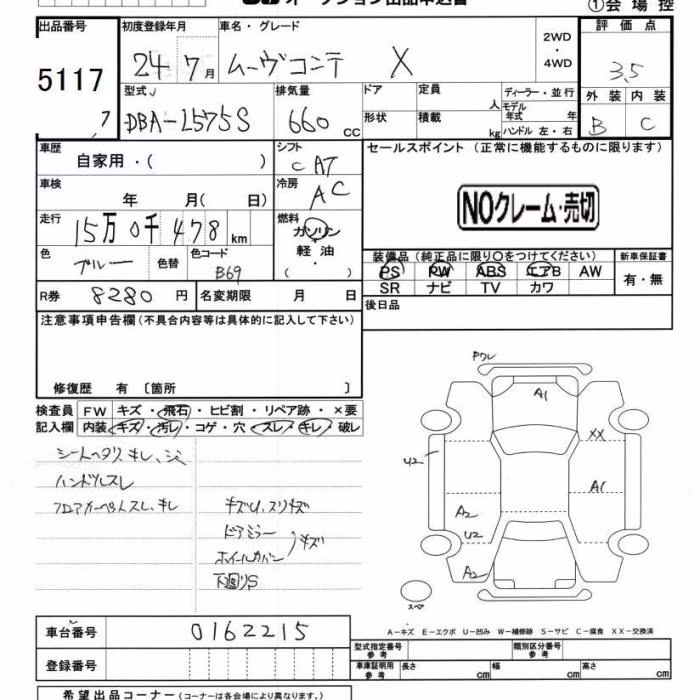 オークション出品申込書
①会場控
出品番号
5117
7
初度登録年月
24年7月
車名・グレード
ムーヴコンテ X
2WD
・
4WD
評価点
3.5
外装 内装
B C
型式
DBA-L575S
排気量
660 cc
ドア
定員
人
形状
積載
kg
ディーラー・並行
モデル年式 年
ハンドル 左・右
車歴
自家用・( )
シフト
C AT
セールスポイント (正常に機能するものに限ります)
NOクレーム・売切
車検
年 月( 日)
冷房
AC
走行
15万0千478km
燃料
ガソリン
軽油
・
( )
色
ブルー
色替
色コード
B69
装備品 (純正品に限り○をつけてください)
PS PW ABS エアB AW
SR ナビ TV カワ
新車保証書
有・無
R券 8280円
名変期限 月 日
後日品
注意事項申告欄(不具合内容等は具体的に記入して下さい)
修復歴 有 〔箇所 〕
検査員記入欄
FW キズ・飛石・ヒビ割・リペア跡・×要
内装 キズ・汚レ・コゲ・穴・スレ・キレ・破レ
シートヘタリ、キレ、シミ
ハンドルスレ
フロアカーペットスレ、キレ
キズU、スリキズ
ドアミラー
ホイールカバー
キズ
下廻りS
Pワレ
A1
XX
U2
A1
A2
U2
A2
スペア
A−キズ E−エクボ U−凹み W−補修跡 S−サビ C−腐食 XX−交換済
車台番号
0162215
登録番号
型式指定番号
参考
類別区分番号
参考
車庫証明用
参考
長さ cm
幅 cm
高さ cm
希望出品コーナー (コーナーは各会場により異なります。)